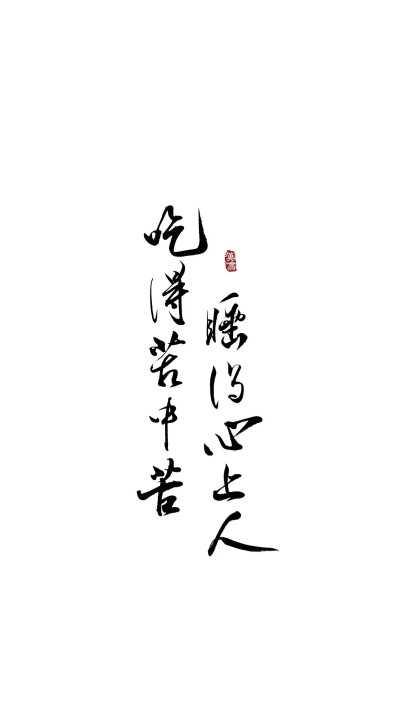 吃得苦中苦
睡得心上人